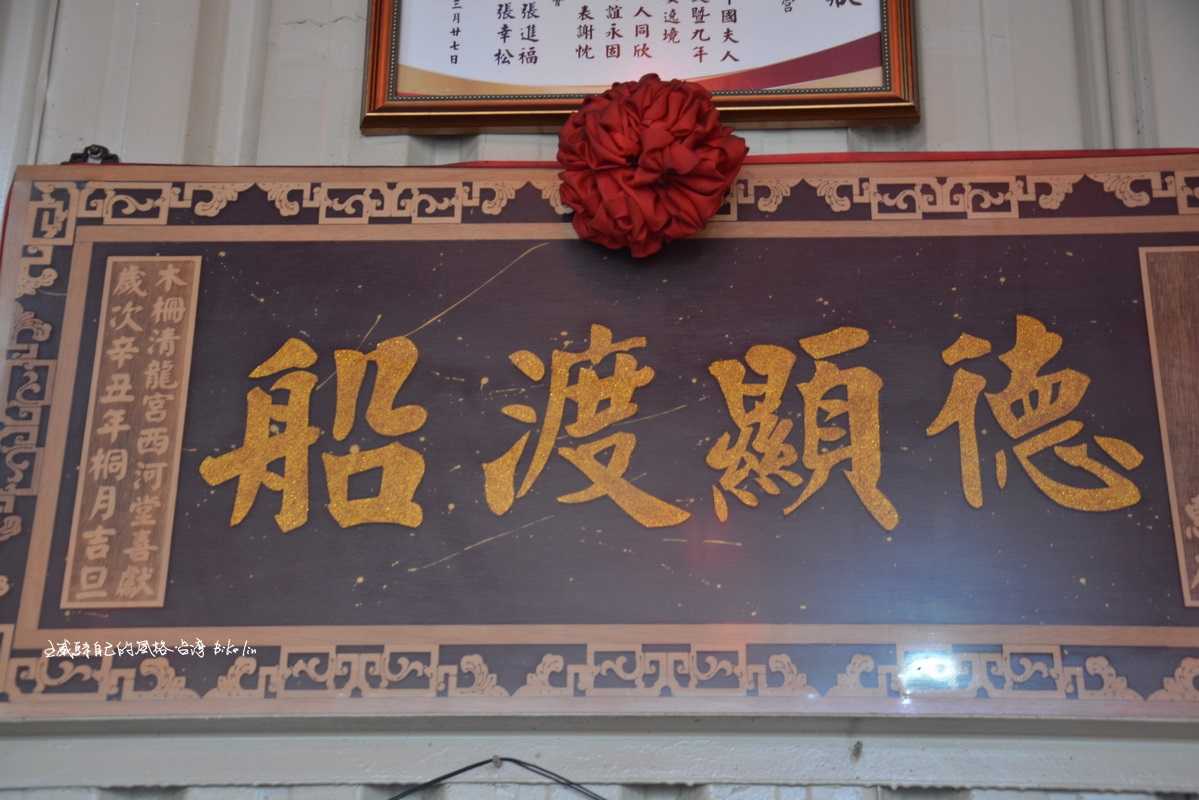 宮
國夫人
暨九年
遶境
人同欣
誼永固
表謝忱
張進福
張幸松
三月廿七日
德顯渡船
木柵清龍宮西河堂喜獻
歲次辛丑年桐月吉旦
自己的風格 台灣 Biko lin